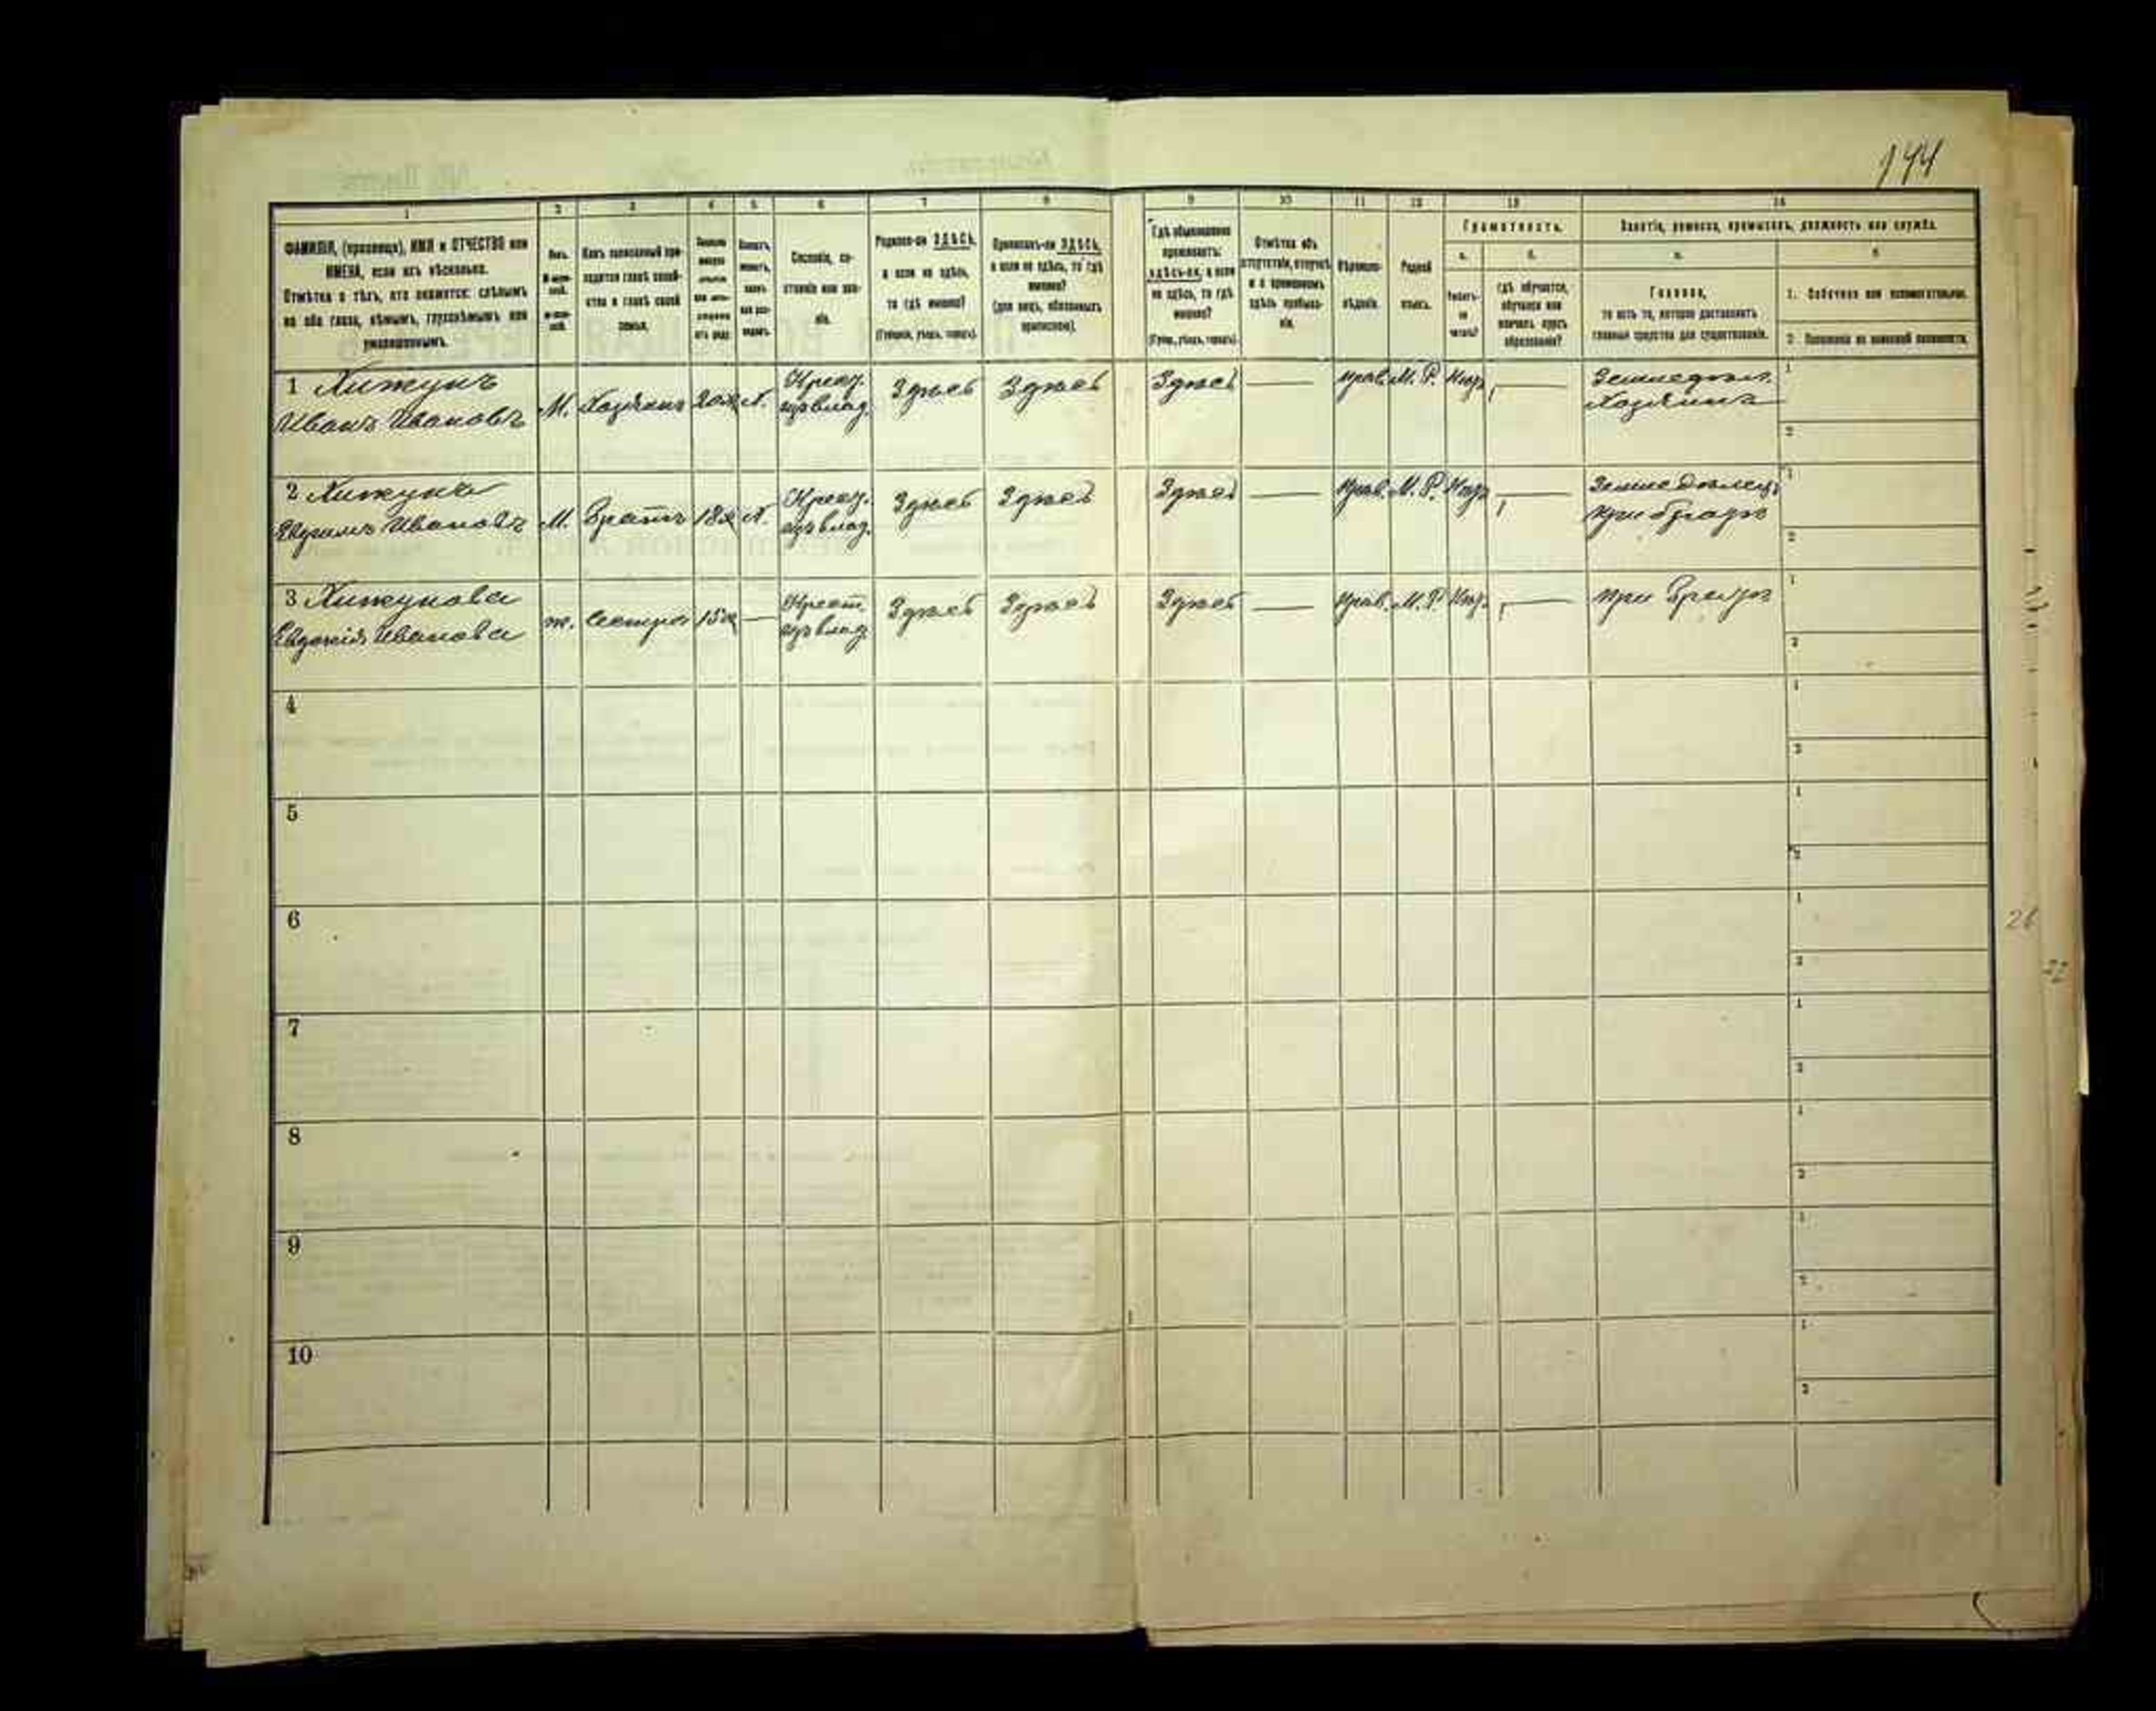 144
1 2 3 4 5 6 7 8 9 10 11 12 13 14
ФАМИЛІЯ, (прозвище), ИМЯ и ОТЧЕСТВО или
ИМЕНА, если ихъ нѣсколько.
Отмѣтка о тѣхъ, кто окажется: слѣпымъ
на оба глаза, нѣмымъ, глухонѣмымъ или
умалишеннымъ.
Полъ.
Какъ записанный при-
ходится главѣ хозяй-
ства и главѣ своей
семьи.
Сословіе, со-
стояніе или зва-
ніе.
Родился-ли ЗДѢСЬ,
а если не здѣсь,
то гдѣ именно?
(Губернія, уѣздъ, городъ).
Приписанъ-ли ЗДѢСЬ,
а если не здѣсь, то гдѣ
именно?
(для лицъ, обязанныхъ
припискою).
Гдѣ обыкновенно
проживаетъ:
здѣсь-ли, а если
не здѣсь, то гдѣ
именно?
(Губер., уѣздъ, городъ)
Отмѣтка объ
отсутствіи, отлучкѣ
и о временномъ
здѣсь пребыва-
ніи.
Вѣроиспо-
вѣданіе.
Родной
языкъ.
Грамотность.
а. б.
Умѣетъ-
ли
читать?
гдѣ обучается,
обучался или
кончилъ курсъ
образованія?
Занятіе, ремесло, промыселъ, должность или служба.
а. б.
Главное,
то есть то, которое доставляетъ
главныя средства для существованія.
1. Побочное или вспомогательное.
2. Положеніе по воинской повинности.
1 Хижунъ
Иванъ Ивановъ М. Хозяинъ 20 Х. Крест. изъ влад. Здѣсь Здѣсь Здѣсь — Прав. М. Р. — Хозяинъ
1
2
2 Хижунъ
Ивановъ М. Братъ 18 Х. Крест. изъ влад. Здѣсь Здѣсь Здѣсь — Прав. М. Р. — Земледѣлецъ
при братѣ
1
2
3 Хижунова
Евдокія Иванова ж. Сестра 15 — Крест. изъ влад. Здѣсь Здѣсь Здѣсь — Прав. М. Р. — при братѣ
1
2
4
1
2
5
1
2
6
1
2
7
1
2
8
1
2
9
1
2
10
1
2